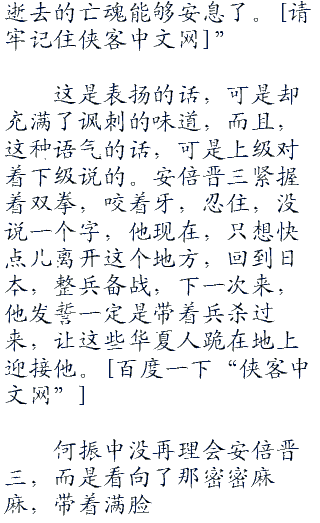 逝去的亡魂能够安息了。[请
牢记住侠客中文网]”
这是表扬的话，可是却
充满了讽刺的味道，而且，
这种语气的话，可是上级对
着下级说的。安倍晋三紧握
着双拳，咬着牙，忍住，没
说一个字，他现在，只想快
点儿离开这个地方，回到日
本，整兵备战，下一次来，
他发誓一定是带着兵杀过
来，让这些华夏人跪在地上
迎接他。[百度一下“侠客中
文网”]
何振中没再理会安倍晋
三，而是看向了那密密麻
麻，带着满脸